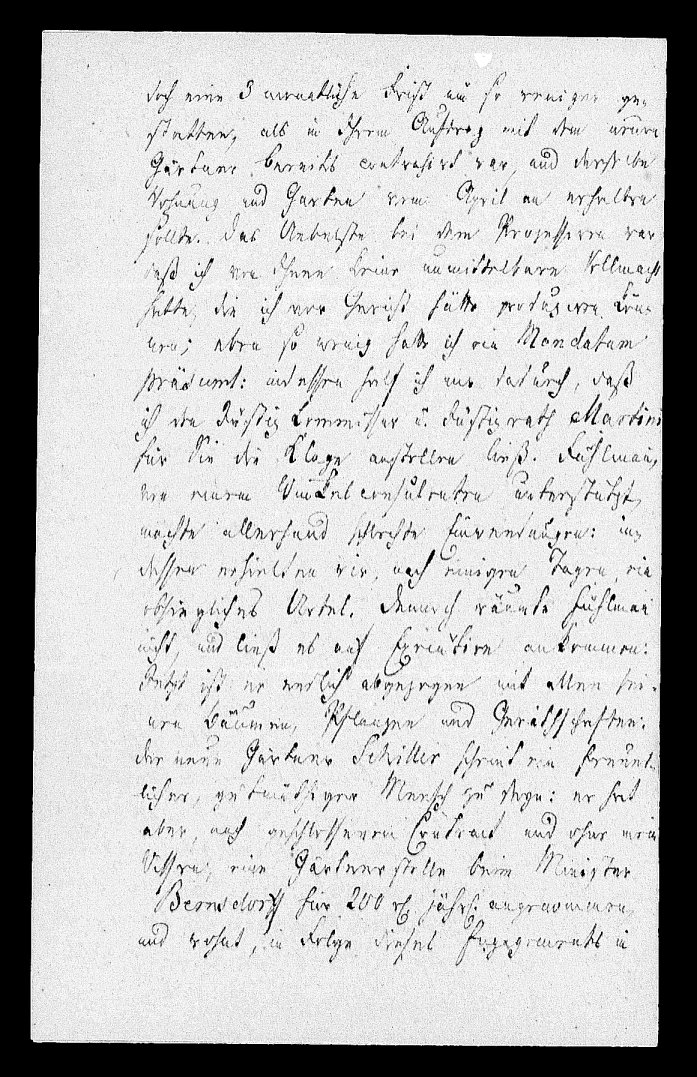 doch eine 3 monatliche Frist um so weniger ge-
statten, als in Ihrem Auftrag mit dem neuen
Gärtner bereits contrahirt war, und derselbe
Wohnung und Garten vom April an erhalten
sollte. Das Uebelste bei dem Prozessiren war
daß ich von Ihnen keine unmittelbare Vollmacht
hatte, die ich vor Gericht hätte produziren kön-
nen; eben so wenig hatte ich ein Mandatum
präsumt: indessen half ich mir dadurch, daß
ich den Justiz Commissar u. Justizrath Martini
für Sie die Klage anstellen ließ. Fuhlman,
von einem Winkelconsulenten unterstützt,
machte allerhand schlechte Einwendungen: in-
dessen erhielten wir, nach einigen Tagen, ein
obsiegliches Urtel. Dennoch räumte Fuhlman
nicht, und ließ es auf Execution ankommen:
Jetzt ist er endlich abgezogen mit allen sei-
nen Bäumen, Pflanzen und Geräthschaften.
Der neue Gärtner Schiller scheint ein freund-
licher, gutmüthiger Mensch zu seyn: er hat
aber, nach geschlossenem Contract und ohne mein
Wissen, eine Gärtnerstelle beim Minister
Bernsdorff für 200 rh jährl. angenommen,
und wohnt, in Folge dieses Engagements in